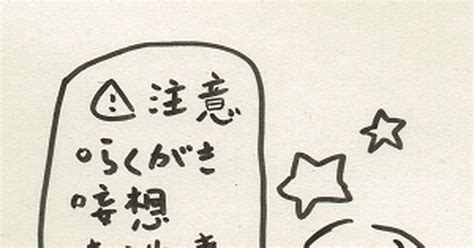 ⚠注意
◦らくがき
◦妄想